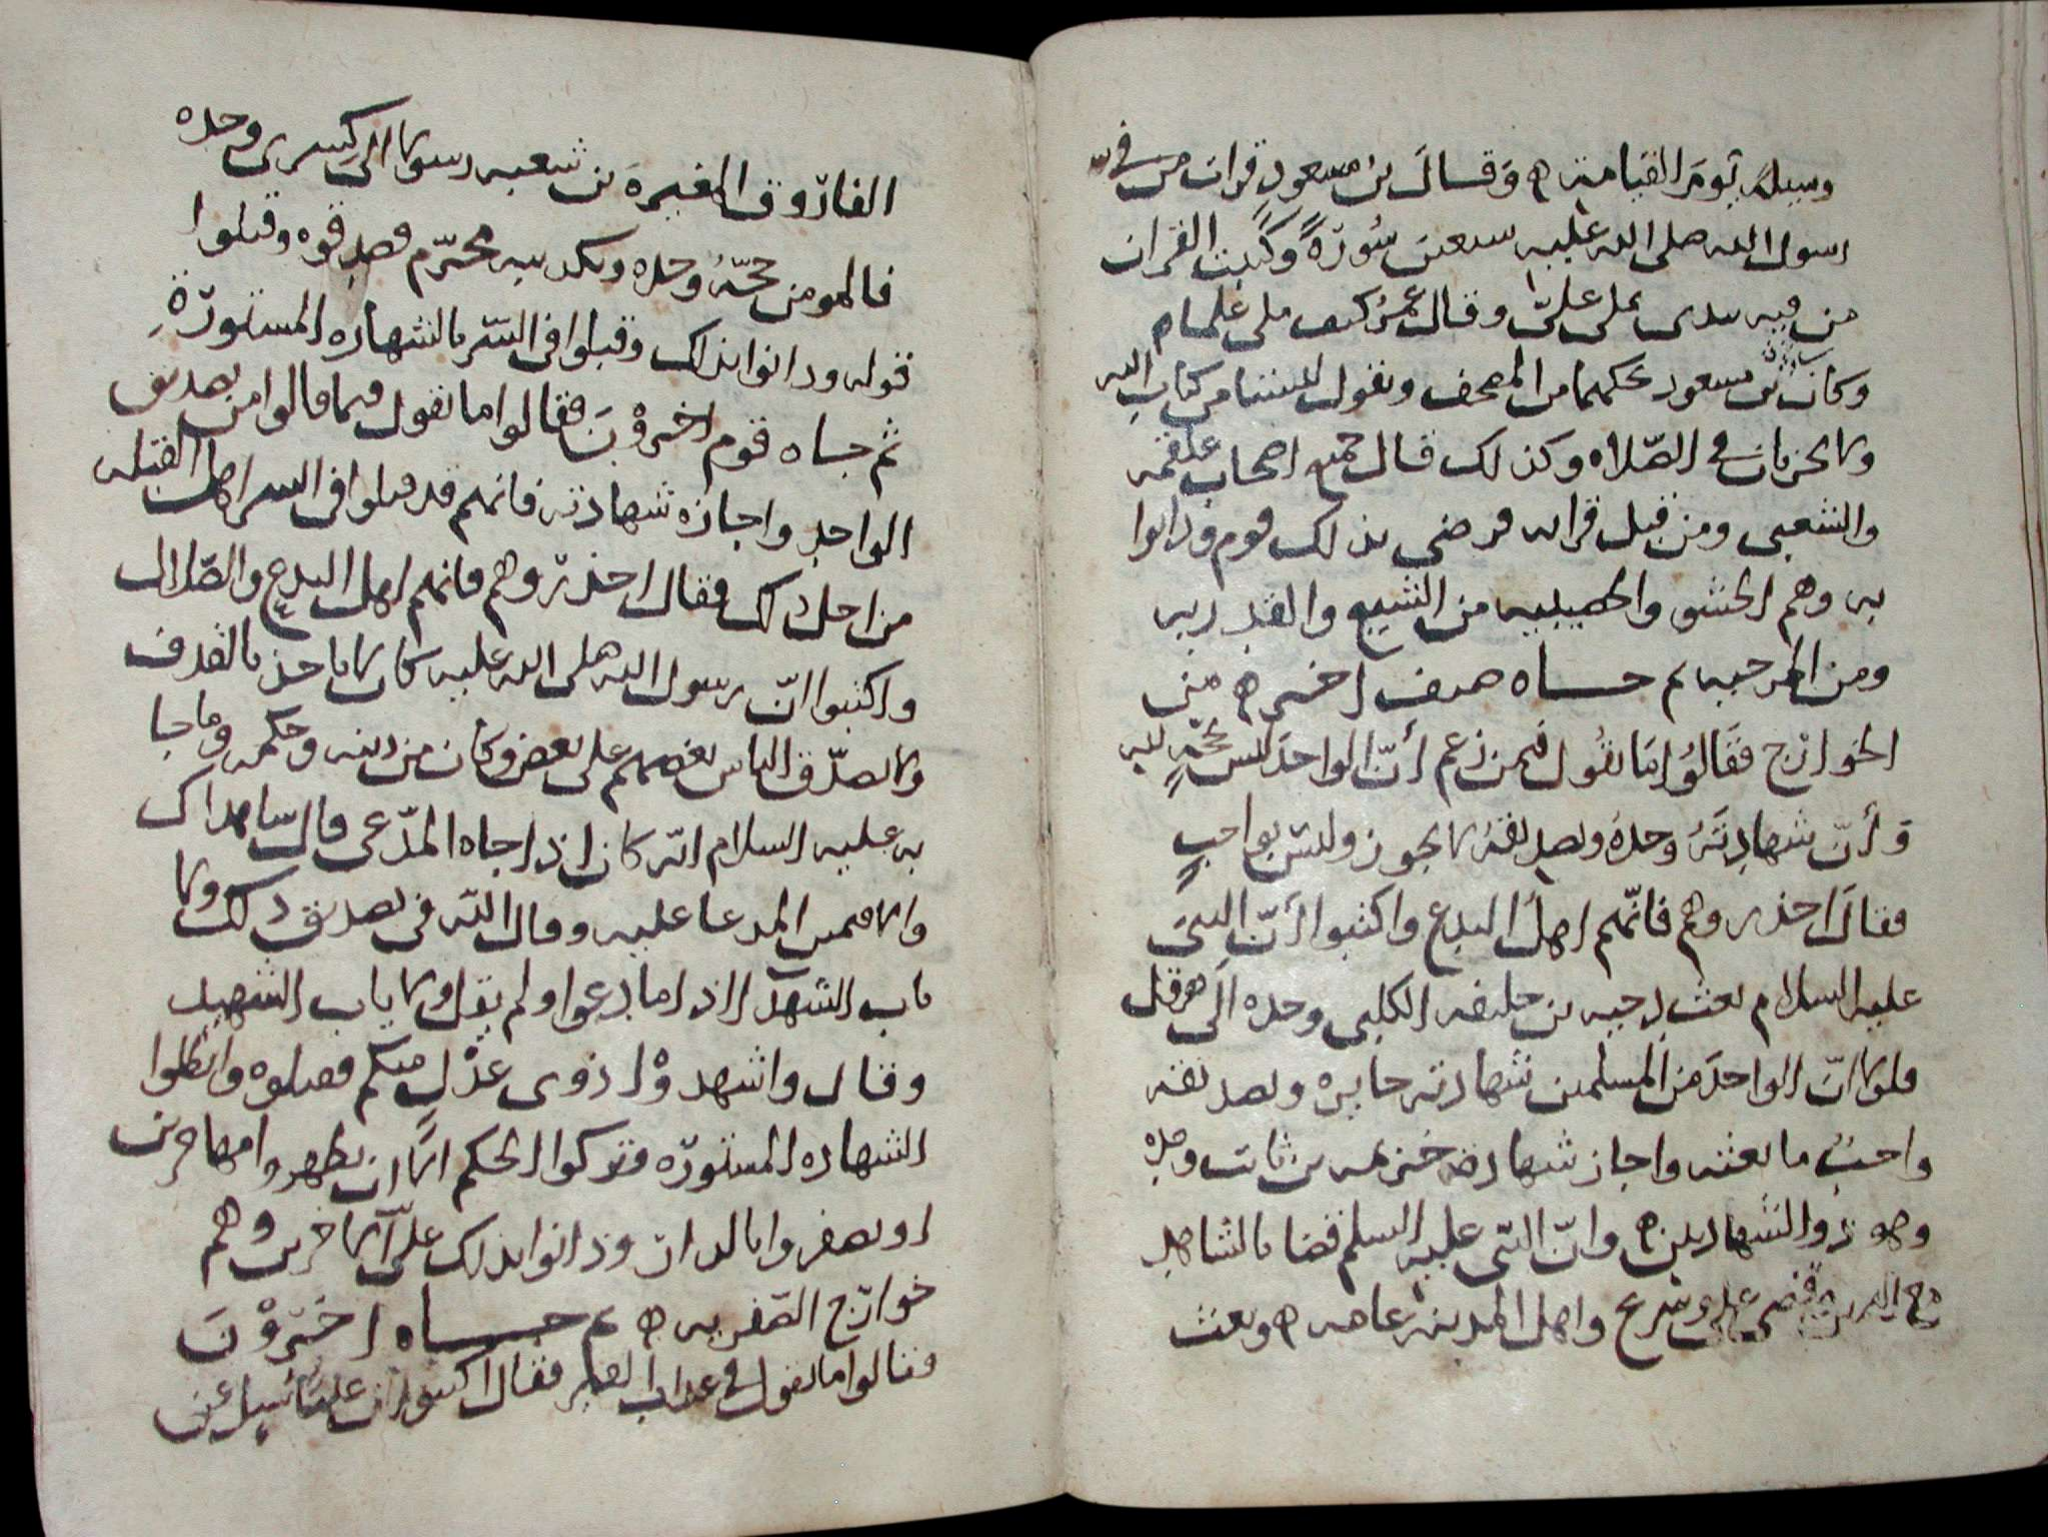 وسيله يوم القيامة ه وقال بن مسعود قرات من في
رسول الله صلى الله عليه سبعين سُورَةً وكتبت القران
من فيه بيدى يملى علىّ وقال عمر كنيف ملى علما
وكان بن مسعود يحكهما من المصحف ويقول ليستا من كتاب الله
ولا تجزيان في الصّلاه وكذلك قال جميع اصحاب علقمه
والشعبى ومن قبل قراته فرضى بذلك قوم ودانوا
به وهم الحشو من الشيع والقدريه
ومن المرجيه ثم جاه صنف اخر ه من
الخوارج فقالوا ما تقول فيمن زعم أنّ الواحد ليس بحجّةٍ
وأنّ شهادتَهُ وحدهُ وتصديقه لا يجوز وليس بواجبٍ
فقال احذروهم فانّهم اهل البدع واكتبوا أنّ النبىَ
عليه السلام بعث دحيه بن خليفه الكلبى وحده الى هرقل
فلولا انّ الواحدَ من المسلمين شهادته جايزه وتصديقه
واجبٌ ما بعثه واجاز شهادة خزيمه بن ثابت وحده
وهو ذو الشهادتين ه وانّ النبّى عليه السلم قضا بالشاهد
مع اليمين وقضى على وشريح واهل المدينه عامه ه وبعث
الفارّوق المغيرة بن شعبه رسولا الى كسرى وحده
فالمومن حجّهٌ وحده وتكذيبه محرّم فصدقوه وقبلوا
قوله ودانوا بذلك وقبلوا فى السّر بالشهاده المستورّةِ
ثم جاه قوم اخروْنَ فقالوا ما تقول فيما قالوا من تصديق
الواحد واجازه شهادته فانهم قد قبلوا فى السر اهل القبله
من اجل ذلك فقال احذرّوهم فانهم اهل البدع والضّلال
واكتبوا انّ رسول الله صلى الله عليه كان لا ياخذ بالقذف
ولا يصدّق الناس بعضهم على بعض وكان من دينه وحكمه وما جا
به عليه السلام انّه كان اذا جاه المدّعى قال شاهداك
والا فيمين المدعا عليه وقال الله فى تصديق ذلك ولا
ياب الشهدآ اذا ما دعوا ولم يقل ولا ياب الشهيد
وقال واشهدوْا ذوى عدْل منكم فقبلوه وابطلوا
الشهاده المستورّه وتركوا الحكم الاّ ان يظهروا مهاجرين
او يصفروا بالدان ودانوا بذلك على الآخرين وهم
خوارّج الصّفريه ه ثم جاه اخرّوْنَ
فقالوا ما تقول في عذاب القبر فقال اكتبوا ان عليّا سُيل عن